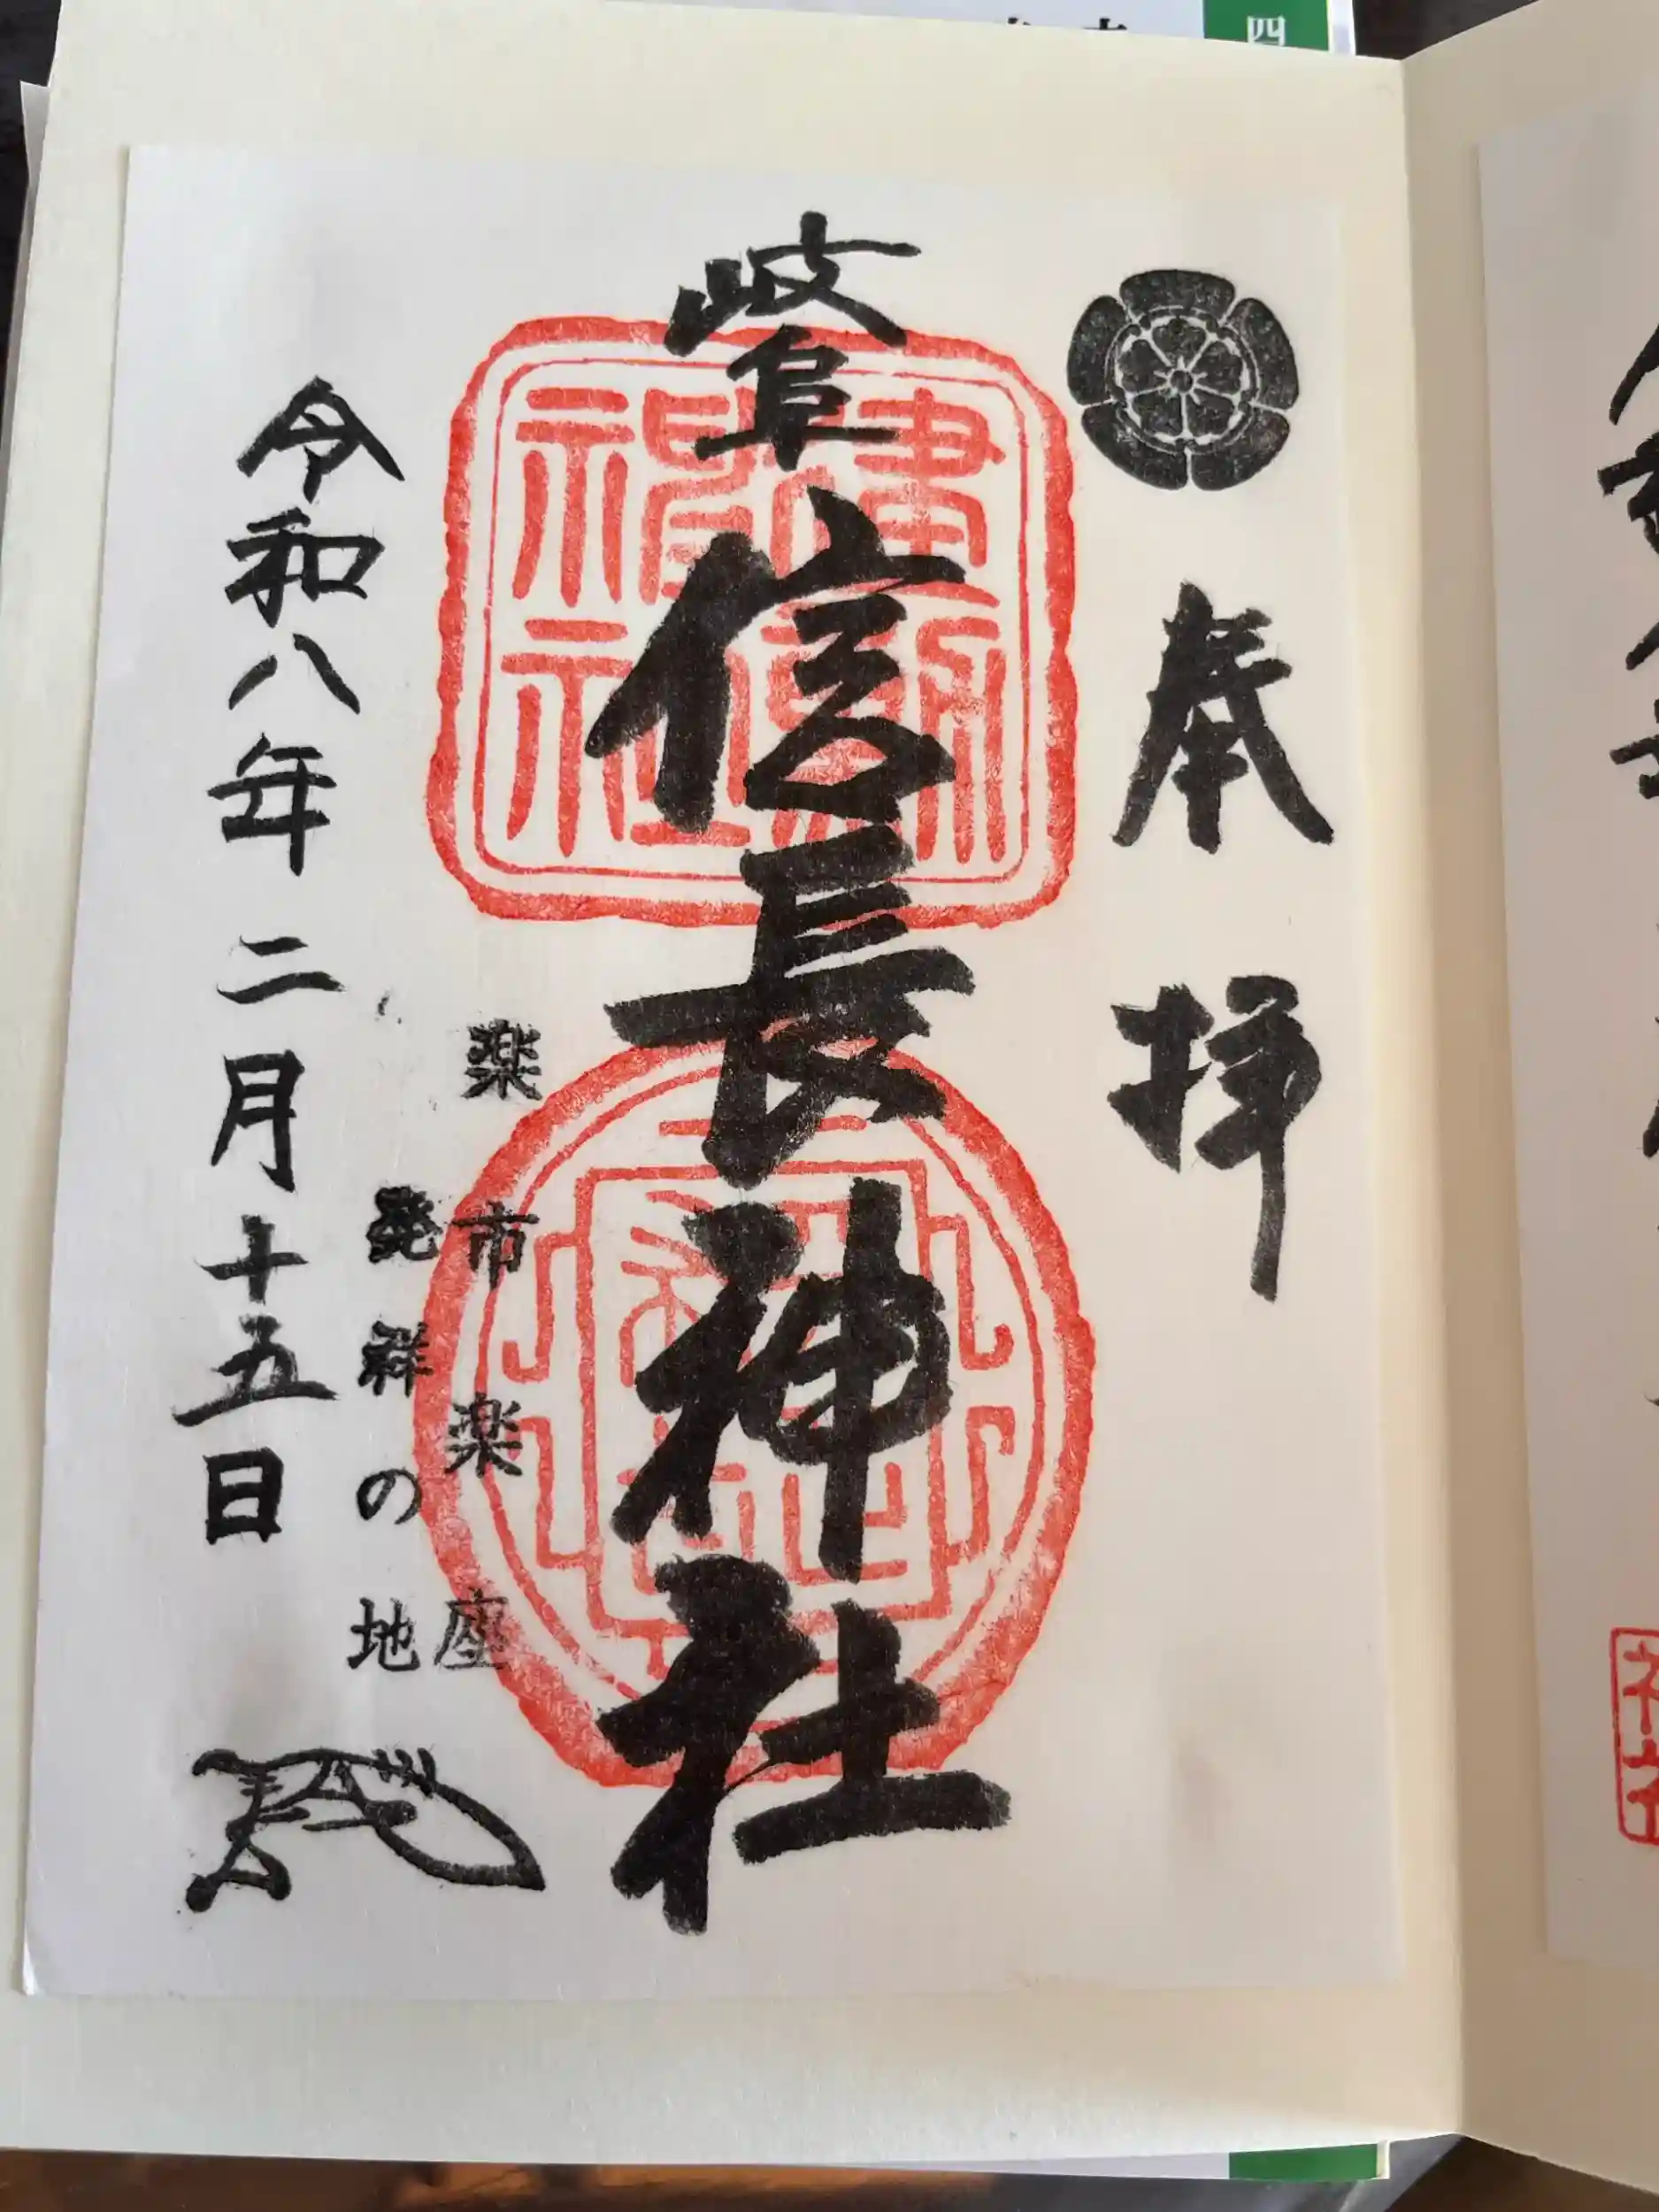 四
奉拝
岐阜
信長神社
建勲神社
楽市楽座
発祥の地
令和八年二月十五日